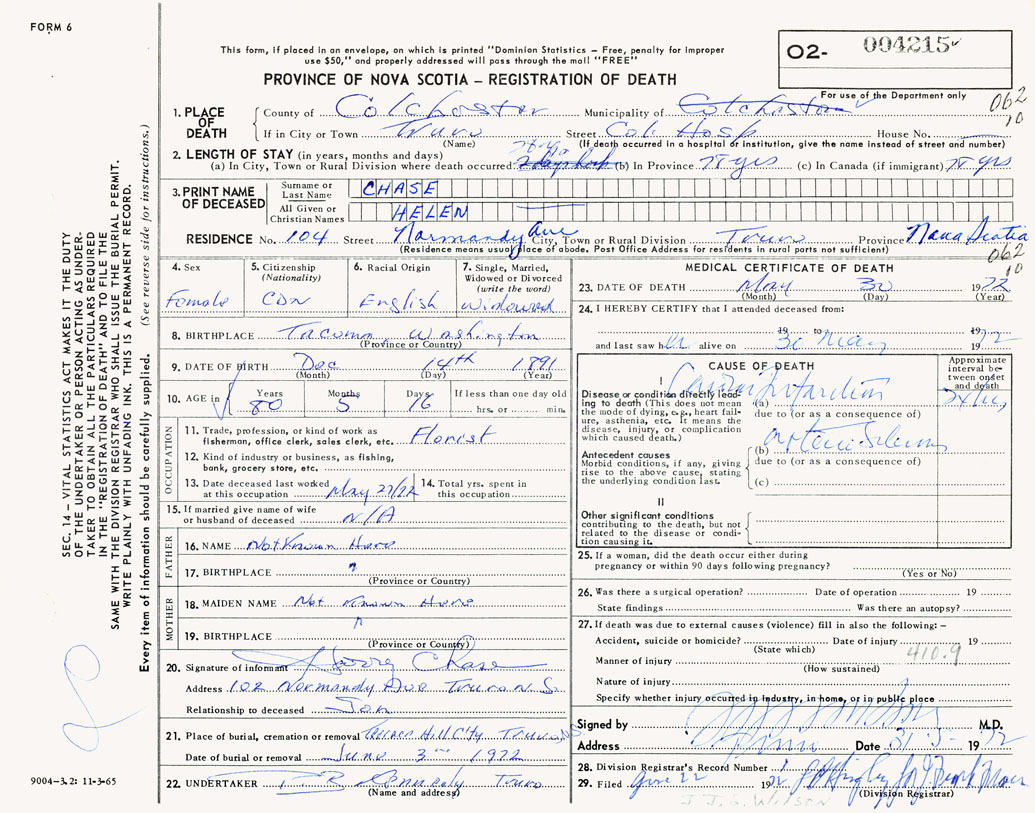 FORM 6
This form, if placed in an envelope, on which is printed "Dominion Statistics – Free, penalty for improper
use $50," and properly addressed will pass through the mail "FREE"
PROVINCE OF NOVA SCOTIA – REGISTRATION OF DEATH
O2- 004215
For use of the Department only
062
10
1. PLACE OF DEATH
County of Colchester Municipality of Colchester
If in City or Town Truro Street Col. Hosp House No.
(Name) (If death occurred in a hospital or institution, give the name instead of street and number)
2. LENGTH OF STAY (in years, months and days)
(a) In City, Town or Rural Division where death occurred (b) In Province yrs (c) In Canada (if immigrant) yrs
3. PRINT NAME OF DECEASED
Surname or Last Name CHASE
All Given or Christian Names HELEN
RESIDENCE No. 104 Street Normandy Ave City, Town or Rural Division Truro Province Nova Scotia
(Residence means usual place of abode. Post Office Address for residents in rural parts not sufficient)
062
10
4. Sex Female
5. Citizenship (Nationality) CDN
6. Racial Origin English
7. Single, Married, Widowed or Divorced (write the word) Widowed
8. BIRTHPLACE Tacoma, Washington
(Province or Country)
9. DATE OF BIRTH Dec 14th 1891
(Month) (Day) (Year)
10. AGE in Years 80 Months 5 Days 16 If less than one day old
hrs. or min.
OCCUPATION
11. Trade, profession, or kind of work as
fisherman, office clerk, sales clerk, etc. Florist
12. Kind of industry or business, as fishing,
bank, grocery store, etc.
13. Date deceased last worked
at this occupation May 27/72
14. Total yrs. spent in
this occupation
15. If married give name of wife
or husband of deceased N/A
FATHER
16. NAME Not Known Here
17. BIRTHPLACE "
(Province or Country)
MOTHER
18. MAIDEN NAME Not Known Here
19. BIRTHPLACE "
(Province or Country)
20. Signature of informant Harry Chase
Address 102 Normandy Ave Truro N.S.
Relationship to deceased Son
21. Place of burial, cremation or removal Hill City, Truro, NS.
Date of burial or removal June 3rd 1972
22. UNDERTAKER Truro
(Name and address)
MEDICAL CERTIFICATE OF DEATH
23. DATE OF DEATH May 30 1972
(Month) (Day) (Year)
24. I HEREBY CERTIFY that I attended deceased from:
19 to 19
and last saw her alive on 30 May 1972
CAUSE OF DEATH
Approximate interval between onset and death
I
Disease or condition directly leading
to death (This does not mean
the mode of dying, e.g., heart failure,
asthenia, etc. it means the
disease, injury, or complication
which caused death.)
(a)
due to (or as a consequence of)
Antecedent causes
Morbid conditions, if any, giving
rise to the above cause, stating
the underlying condition last.
(b)
due to (or as a consequence of)
(c)
II
Other significant conditions
contributing to the death, but not
related to the disease or condition
causing it.
25. If a woman, did the death occur either during
pregnancy or within 90 days following pregnancy?
(Yes or No)
26. Was there a surgical operation? Date of operation 19
State findings Was there an autopsy?
27. If death was due to external causes (violence) fill in also the following: –
Accident, suicide or homicide? Date of injury 19
(State which) 410.9
Manner of injury
(How sustained)
Nature of injury
Specify whether injury occurred in industry, in home, or in public place
Signed by M.D.
Address Truro Date 31-5- 1972
28. Division Registrar's Record Number
29. Filed June 22 1972
(Division Registrar)
J.J.S. WILSON
SEC. 14 – VITAL STATISTICS ACT MAKES IT THE DUTY
OF THE UNDERTAKER OR PERSON ACTING AS UNDERTAKER
TO OBTAIN ALL THE PARTICULARS REQUIRED
IN THE "REGISTRATION OF DEATH" AND TO FILE THE
SAME WITH THE DIVISION REGISTRAR WHO SHALL ISSUE THE BURIAL PERMIT.
WRITE PLAINLY WITH UNFADING INK. THIS IS A PERMANENT RECORD.
Every item of information should be carefully supplied. (See reverse side for instructions.)
9004–3.2: 11-3-65